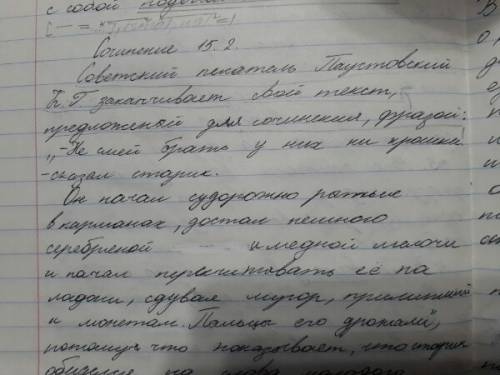 с собой
Сочинение 15.2.
Советский писатель Паустовский
К.Г заканчивает свой текст,
предложеный для сочинения, фразой:
„-Не смей брать у них ни крошки!
-сказал старик.
Он начал судорожно рыться
в карманах, достал немного
серебреной и медной мелочи
и начал пересчитывать её на
ладони, сдувая мусор, прилипший
к монетам. Пальцы его дрожали",
потому что показывает, что старик
обиделся на слова молодого